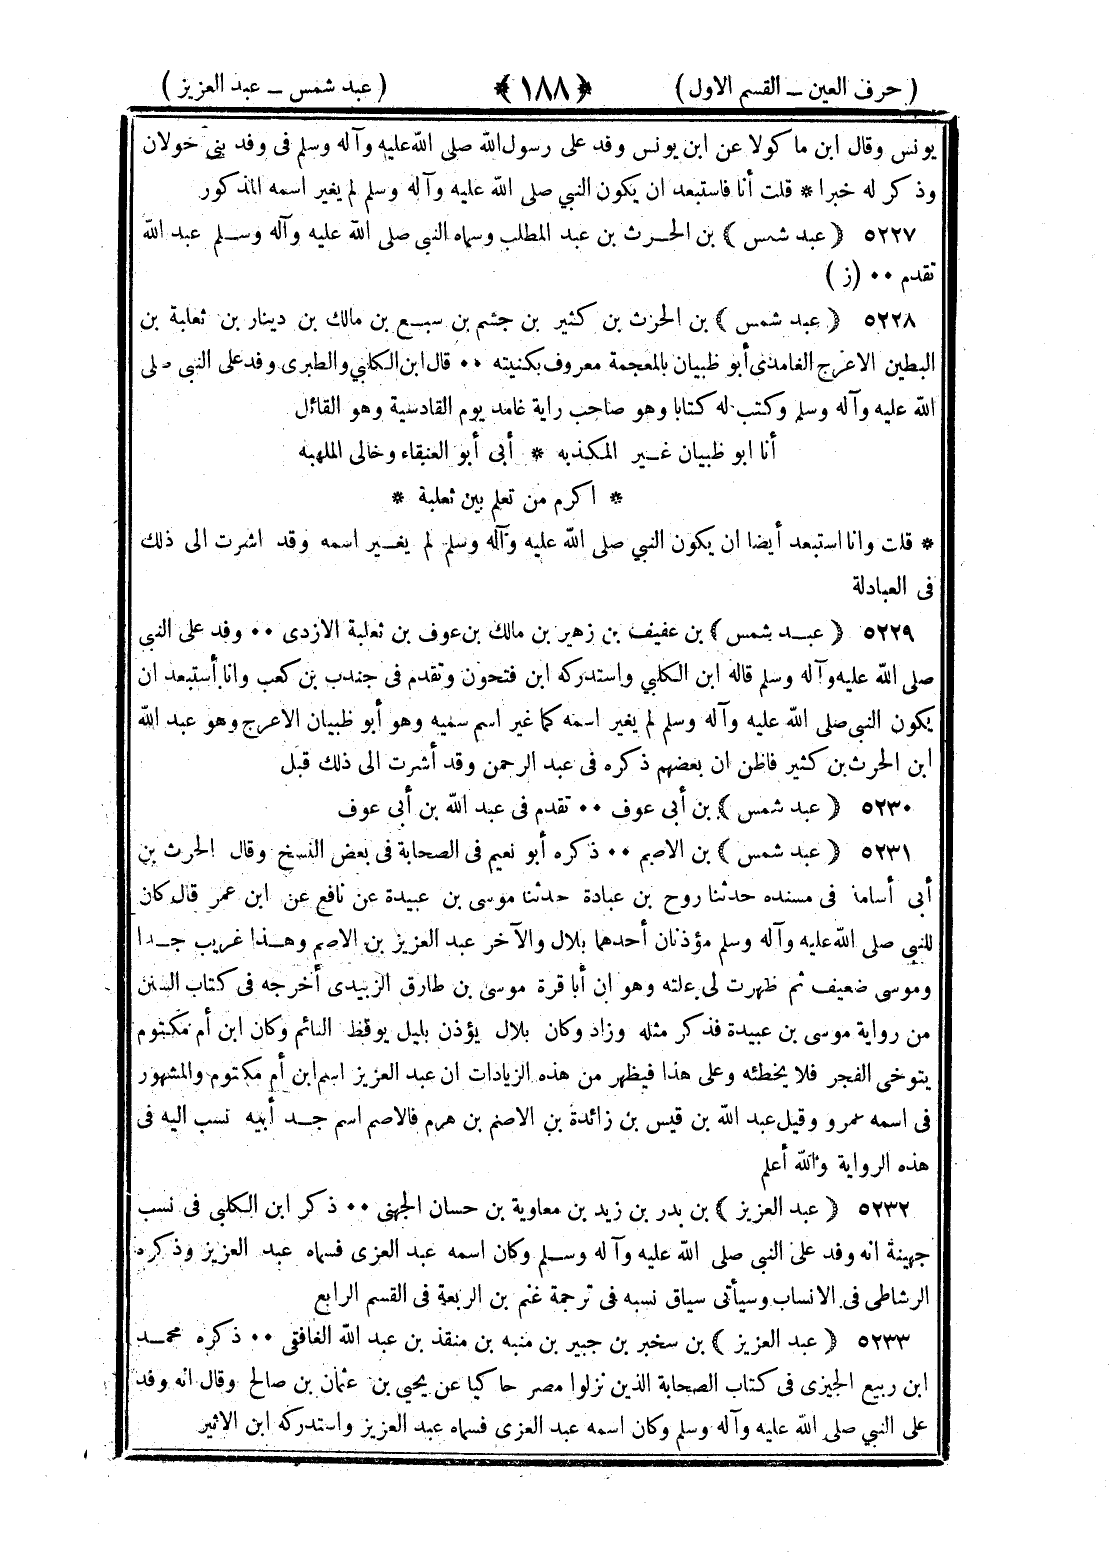 ( حرف العين ــ القسم الاول ) ﴿ ١٨٨ ﴾ ( عبد شمس ــ عبد العزيز )
يونس وقال ابن ماكولا عن ابن يونس وفد على رسول الله صلى الله عليه وآله وسلم فى وفد بنى خولان
وذكر له خبرا * قلت أنا فاستبعد ان يكون النبي صلى الله عليه وآله وسلم لم يغير اسمه المذكور
٥٢٢٧ ﴿ عبد شمس ﴾ بن الحرث بن عبد المطلب وسماه النبي صلى الله عليه وآله وسلم عبد الله
تقدم ٠٠ ( ز )
٥٢٢٨ ﴿ عبد شمس ﴾ بن الحرث بن كثير بن جشم بن سبيع بن مالك بن دينار بن ثعلبة بن
البطين الاعرج الغامدى أبو ظبيان بالمعجمة معروف بكنيته ٠٠ قال ابن الكلبي والطبرى وفد على النبي صلى
الله عليه وآله وسلم وكتب له كتابا وهو صاحب راية غامد يوم القادسية وهو القائل
أنا ابو ظبيان غير المكذبه * أبى أبو العنقاء وخالى الملهبه
* اكرم من تعلم بين ثعلبة *
* قلت وانا استبعد أيضا ان يكون النبي صلى الله عليه وآله وسلم لم يغير اسمه وقد اشرت الى ذلك
فى العبادلة
٥٢٢٩ ﴿ عبد شمس ﴾ بن عفيف بن زهير بن مالك بن عوف بن ثعلبة الازدى ٠٠ وفد على النبي
صلى الله عليه وآله وسلم قاله ابن الكلبي واستدركه ابن فتحون وتقدم فى جندب بن كعب وانا أستبعد ان
يكون النبي صلى الله عليه وآله وسلم لم يغير اسمه كما غير اسم سميه وهو أبو ظبيان الاعرج وهو عبد الله
ابن الحرث بن كثير فاظن ان بعضهم ذكره فى عبد الرحمن وقد أشرت الى ذلك قبل
٥٢٣٠ ﴿ عبد شمس ﴾ بن أبى عوف ٠٠ تقدم فى عبد الله بن أبى عوف
٥٢٣١ ﴿ عبد شمس ﴾ بن الاصم ٠٠ ذكره أبو نعيم فى الصحابة فى بعض النسخ وقال الحرث بن
أبى أسامة فى مسنده حدثنا روح بن عبادة حدثنا موسى بن عبيدة عن نافع عن ابن عمر قال كان
للنبي صلى الله عليه وآله وسلم مؤذنان أحدهما بلال والآخر عبد العزيز بن الاصم وهذا غريب جدا
وموسى ضعيف ثم ظهرت لى علته وهو ان أبا قرة موسى بن طارق الزبيدى أخرجه فى كتاب السنن
من رواية موسى بن عبيدة فذكر مثله وزاد وكان بلال يؤذن بليل يوقظ النائم وكان ابن أم مكتوم
يتوخى الفجر فلا يخطئه وعلى هذا فيظهر من هذه الزيادات ان عبد العزيز اسم ابن أم مكتوم والمشهور
فى اسمه عمرو وقيل عبد الله بن قيس بن زائدة بن الاصم بن هرم فالاصم اسم جد أبيه نسب اليه فى
هذه الرواية والله أعلم
٥٢٣٢ ﴿ عبد العزيز ﴾ بن بدر بن زيد بن معاوية بن حسان الجهنى ٠٠ ذكر ابن الكلبي فى نسب
جهينة انه وفد على النبي صلى الله عليه وآله وسلم وكان اسمه عبد العزى فسماه عبد العزيز وذكره
الرشاطى فى الانساب وسيأتى سياق نسبه فى ترجمة غنم بن الربعة فى القسم الرابع
٥٢٣٣ ﴿ عبد العزيز ﴾ بن سخبر بن جبير بن منبه بن منقذ بن عبد الله الغافقى ٠٠ ذكره محمد
ابن ربيع الجيزى فى كتاب الصحابة الذين نزلوا مصر حاكيا عن يحيى بن عثمان بن صالح وقال انه وفد
على النبي صلى الله عليه وآله وسلم وكان اسمه عبد العزى فسماه عبد العزيز واستدركه ابن الاثير